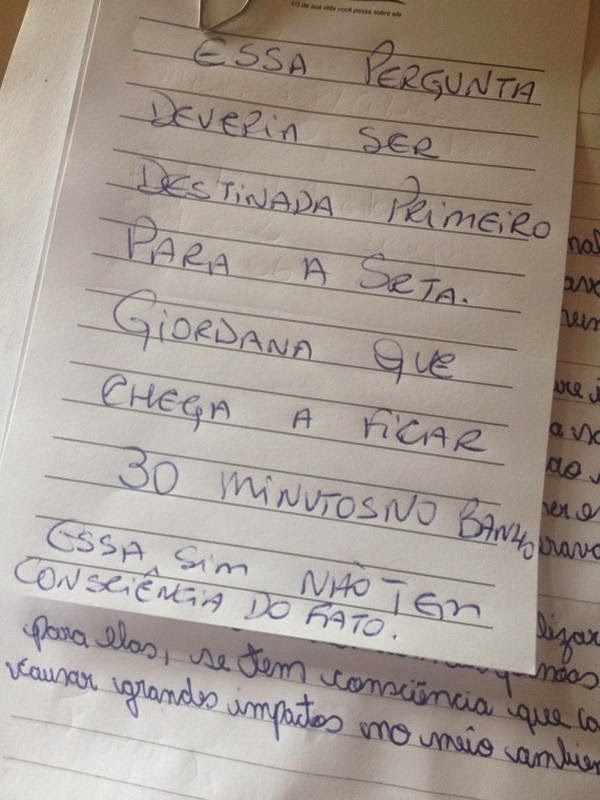 1/3 da sua vida você passa sobre ele
ESSA PERGUNTA
DEVERIA SER
DESTINADA PRIMEIRO
PARA A SRTA.
GIORDANA QUE
CHEGA A FICAR
30 MINUTOS NO BANHO
ESSA SIM NÃO TEM
CONSCIÊNCIA DO FATO.
para elas, se tem consciência que
causar grandes impactos no meio